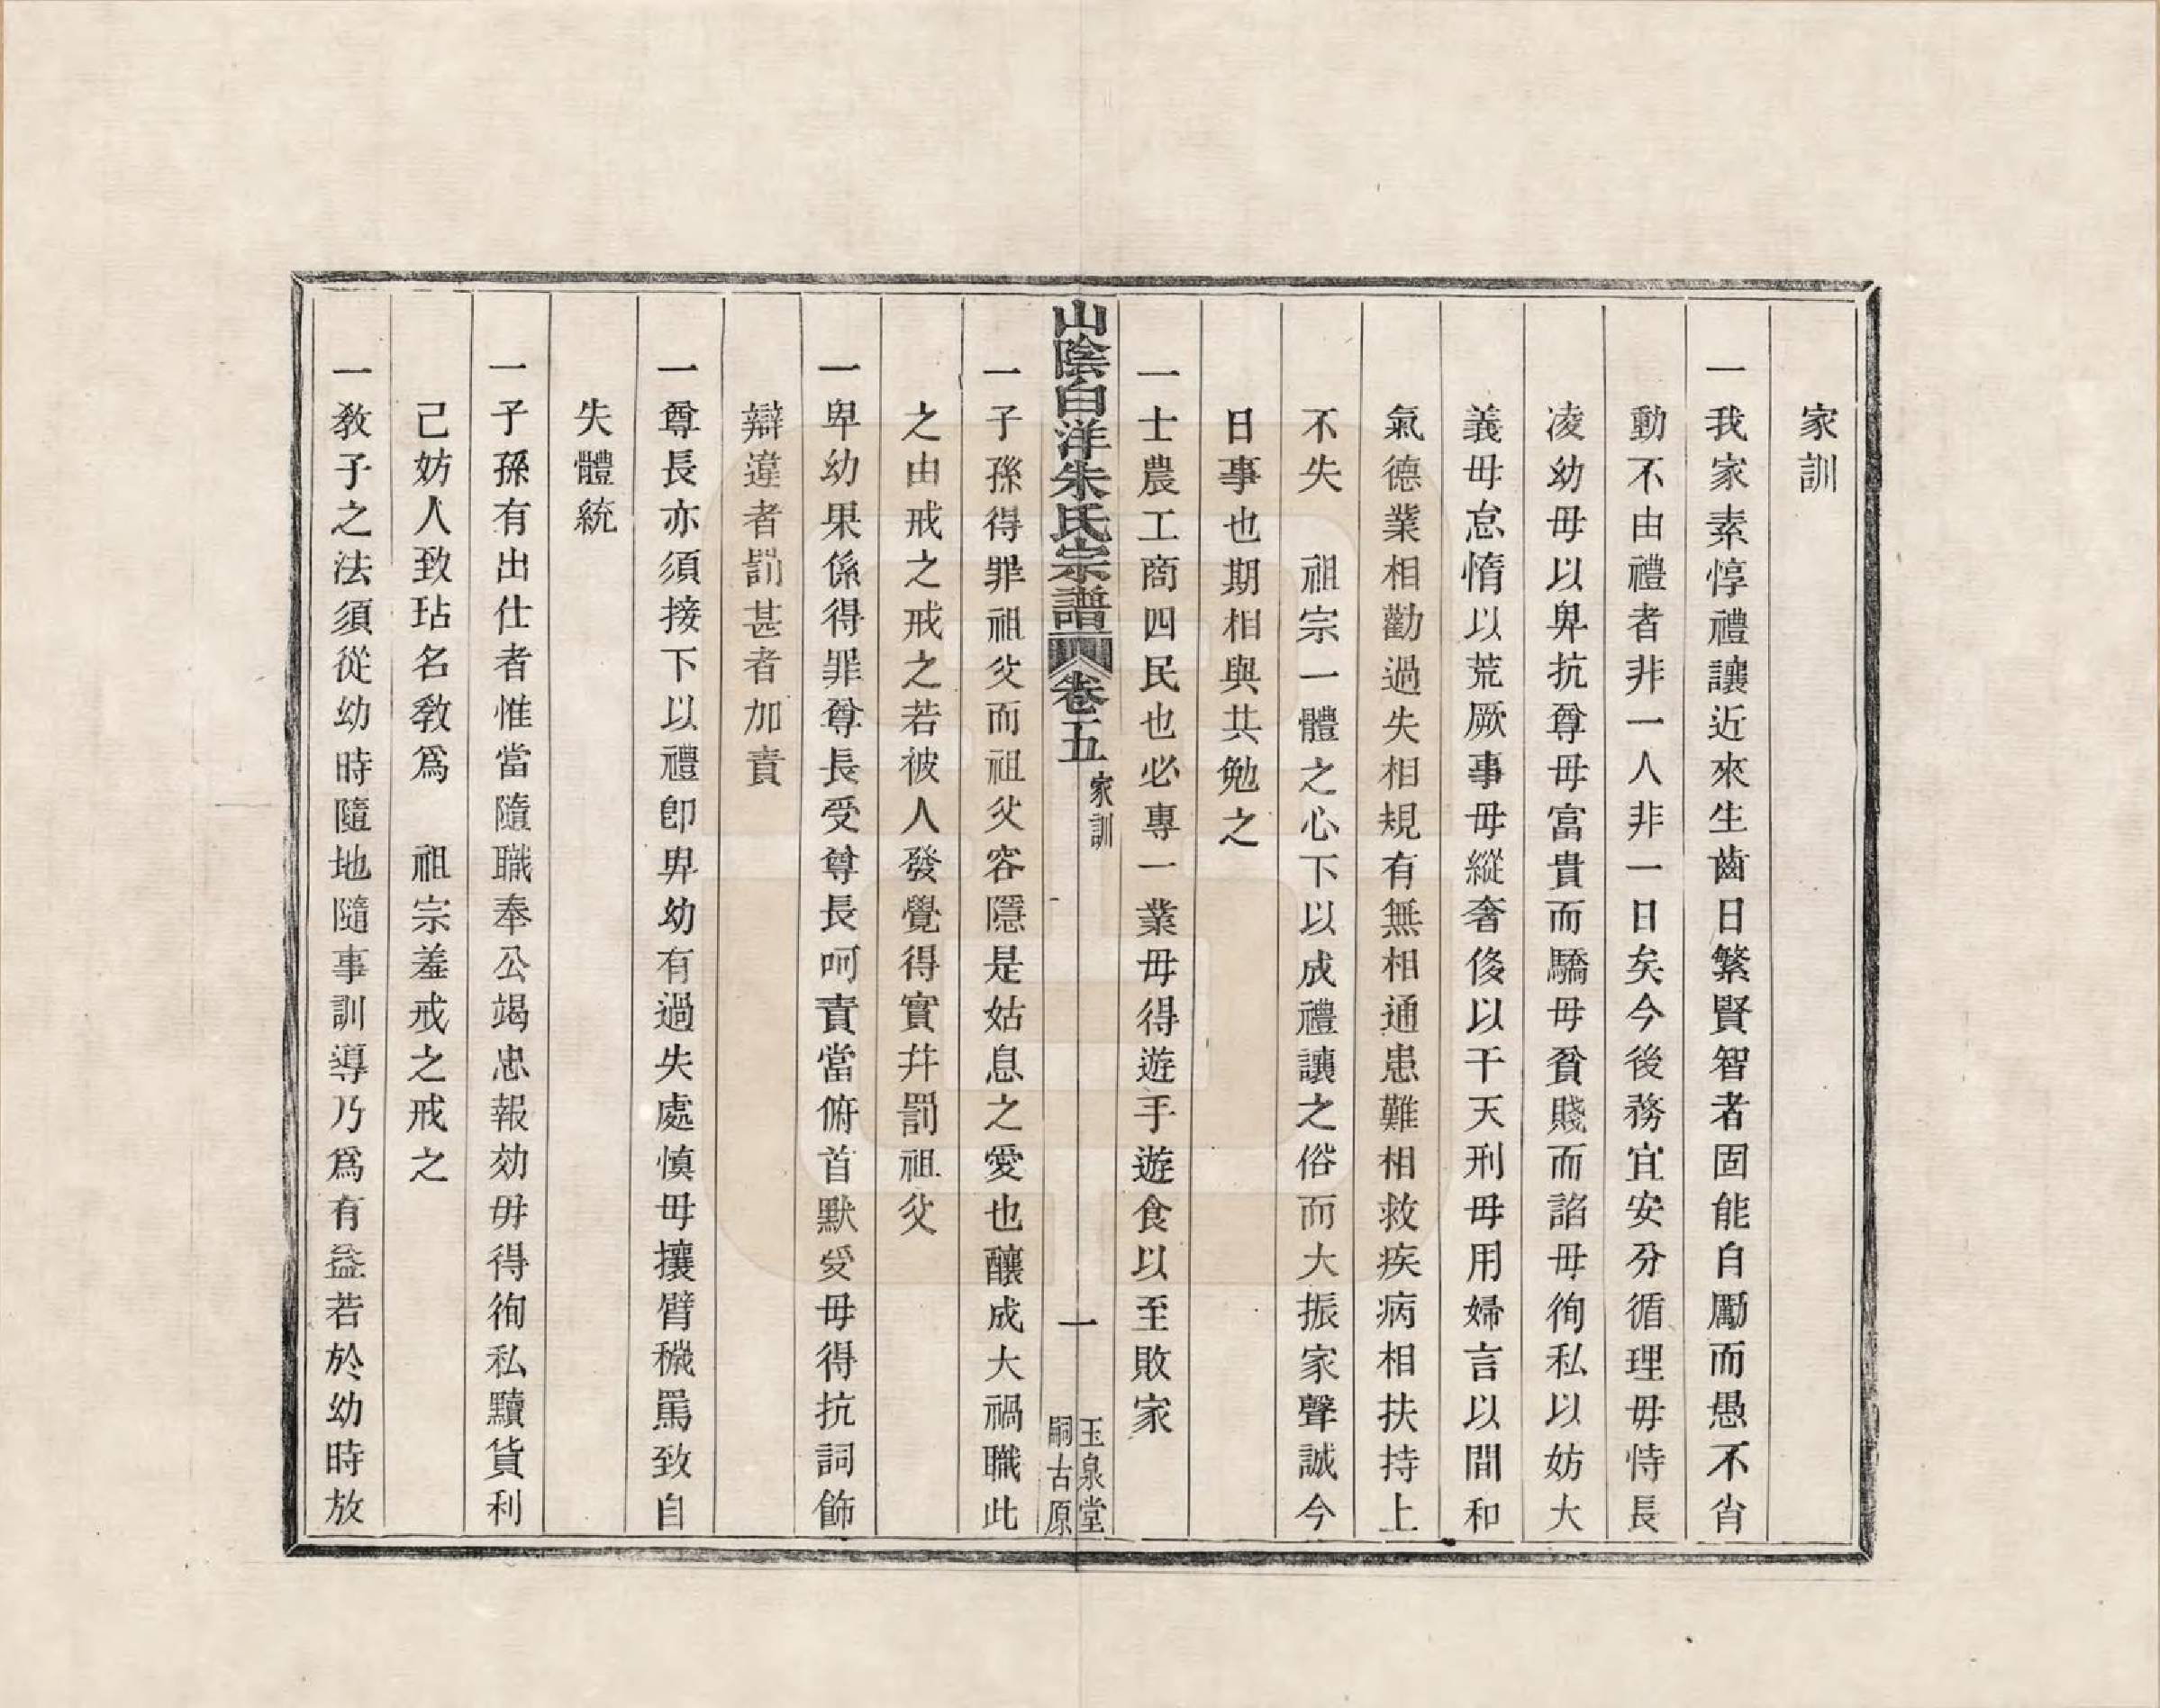 家訓
一我家素惇禮讓近來生齒日繁賢智者固能自勵而愚不肖
動不由禮者非一人非一日矣今後務宜安分循理毋恃長
凌幼毋以卑抗尊毋富貴而驕毋貧賤而諂毋徇私以妨大
義毋怠惰以荒厥事毋縱奢侈以干天刑毋用婦言以間和
氣德業相勸過失相規有無相通患難相救疾病相扶持上
不失　祖宗一體之心下以成禮讓之俗而大振家聲誠今
日事也期相與共勉之
一士農工商四民也必專一業毋得遊手遊食以至敗家
山陰白洋朱氏宗譜
卷五
家訓
一
玉泉堂
嗣古原
一子孫得罪祖父而祖父容隱是姑息之愛也釀成大禍職此
之由戒之戒之若被人發覺得實并罰祖父
一卑幼果係得罪尊長受尊長呵責當俯首默受毋得抗詞飾
辯違者罰甚者加責
一尊長亦須接下以禮卽卑幼有過失處慎毋攘臂穢罵致自
失體統
一子孫有出仕者惟當隨職奉公竭忠報効毋得徇私黷貨利
己妨人致玷名敎爲　祖宗羞戒之戒之
一敎子之法須從幼時隨地隨事訓導乃爲有益若於幼時放